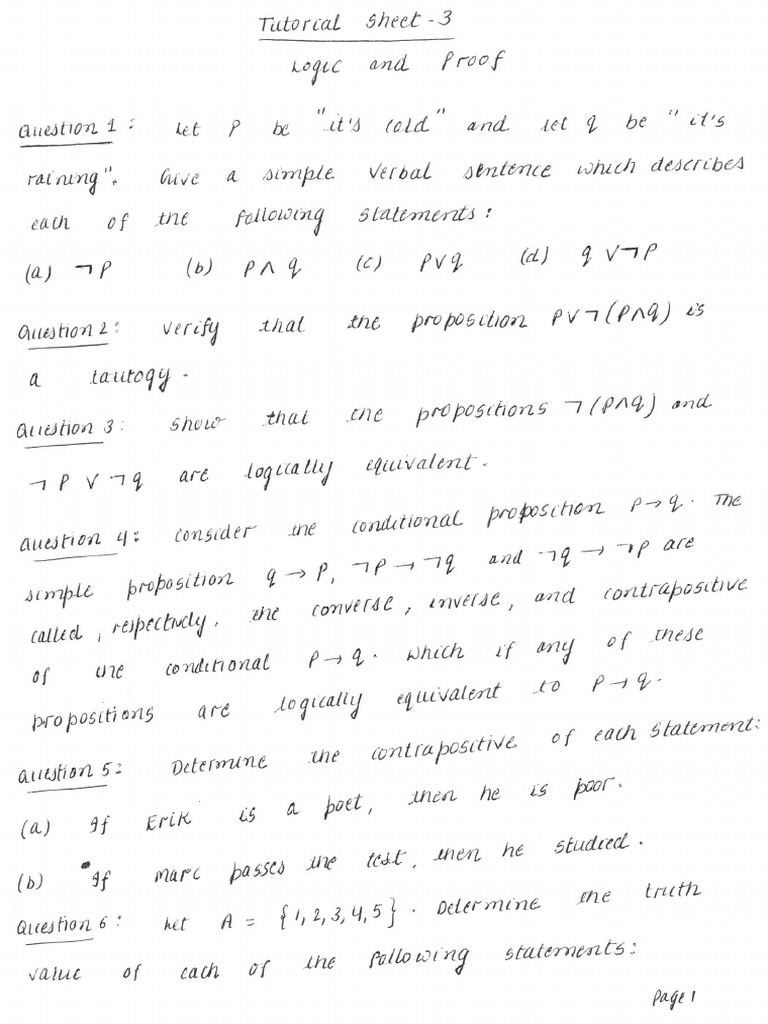 Tutorial Sheet-3
Logic and Proof
Question 1: Let P be "it's cold" and let q be "it's
raining". Give a simple verbal sentence which describes
each of the following statements:
(a) ¬P (b) P∧q (c) P∨q (d) q∨¬P
Question 2: Verify that the proposition P∨¬(P∧q) is
a tautogy.
Question 3: Show that the propositions ¬(P∧q) and
¬P∨¬q are logically equivalent.
Question 4: Consider the conditional proposition P→q. The
simple proposition q→P, ¬P→¬q and ¬q→¬P are
called, respectively, the converse, inverse, and contrapositive
of the conditional P→q. Which if any of these
propositions are logically equivalent to P→q.
Question 5: Determine the contrapositive of each statement:
(a) If Erik is a poet, then he is poor.
(b) If Marc passes the test, then he studied.
Question 6: Let A = {1,2,3,4,5}. Determine the truth
value of each of the following statements:
Page 1